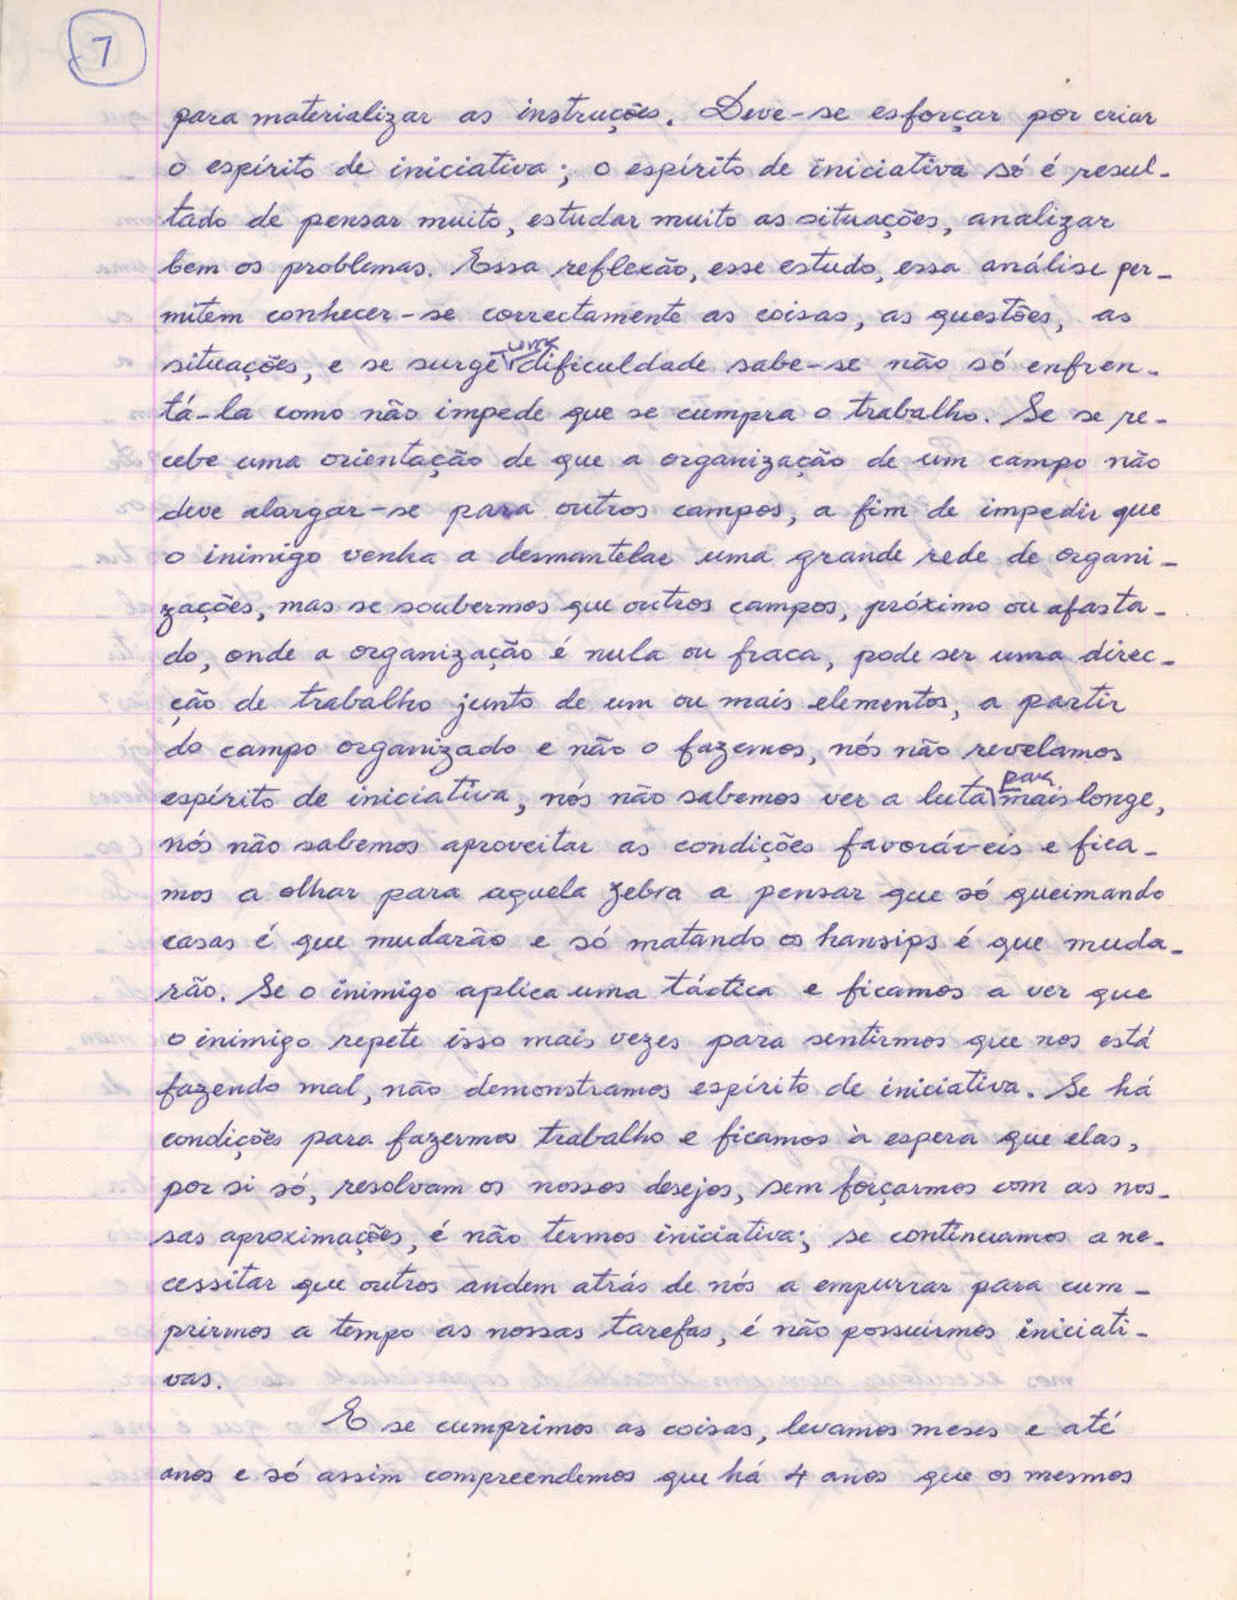 7
para materializar as instruções. Deve-se esforçar por criar
o espírito de iniciativa; o espírito de iniciativa só é resul-
tado de pensar muito, estudar muito as situações, analizar
bem os problemas. Essa reflexão, esse estudo, essa análise per-
mitem conhecer-se correctamente as coisas, as questões, as
situações, e se surge uma dificuldade sabe-se não só enfren-
tá-la como não impede que se cumpra o trabalho. Se se re-
cebe uma orientação de que a organização de um campo não
deve alargar-se para outros campos, a fim de impedir que
o inimigo venha a desmantelar uma grande rede de organi-
zações, mas se soubermos que outros campos, próximo ou afasta-
do, onde a organização é nula ou fraca, pode ser uma direc-
ção de trabalho junto de um ou mais elementos, a partir
do campo organizado e não o fazemos, nós não revelamos
espírito de iniciativa, nós não sabemos ver a luta para mais longe,
nós não sabemos aproveitar as condições favoráveis e fica-
mos a olhar para aquela zebra a pensar que só queimando
casas é que mudarão e só matando os hansips é que muda-
rão. Se o inimigo aplica uma táctica e ficamos a ver que
o inimigo repete isso mais vezes para sentirmos que nos está
fazendo mal, não demonstramos espírito de iniciativa. Se há
condições para fazermos trabalho e ficamos à espera que elas,
por si só, resolvam os nossos desejos, sem forçarmos com as nos-
sas aproximações, é não termos iniciativa; se continuamos a ne-
cessitar que outros andem atrás de nós a empurrar para cum-
prirmos a tempo as nossas tarefas, é não possuirmos iniciati-
vas.
E se cumprimos as coisas, levamos meses e até
anos e só assim compreendemos que há 4 anos que os mesmos